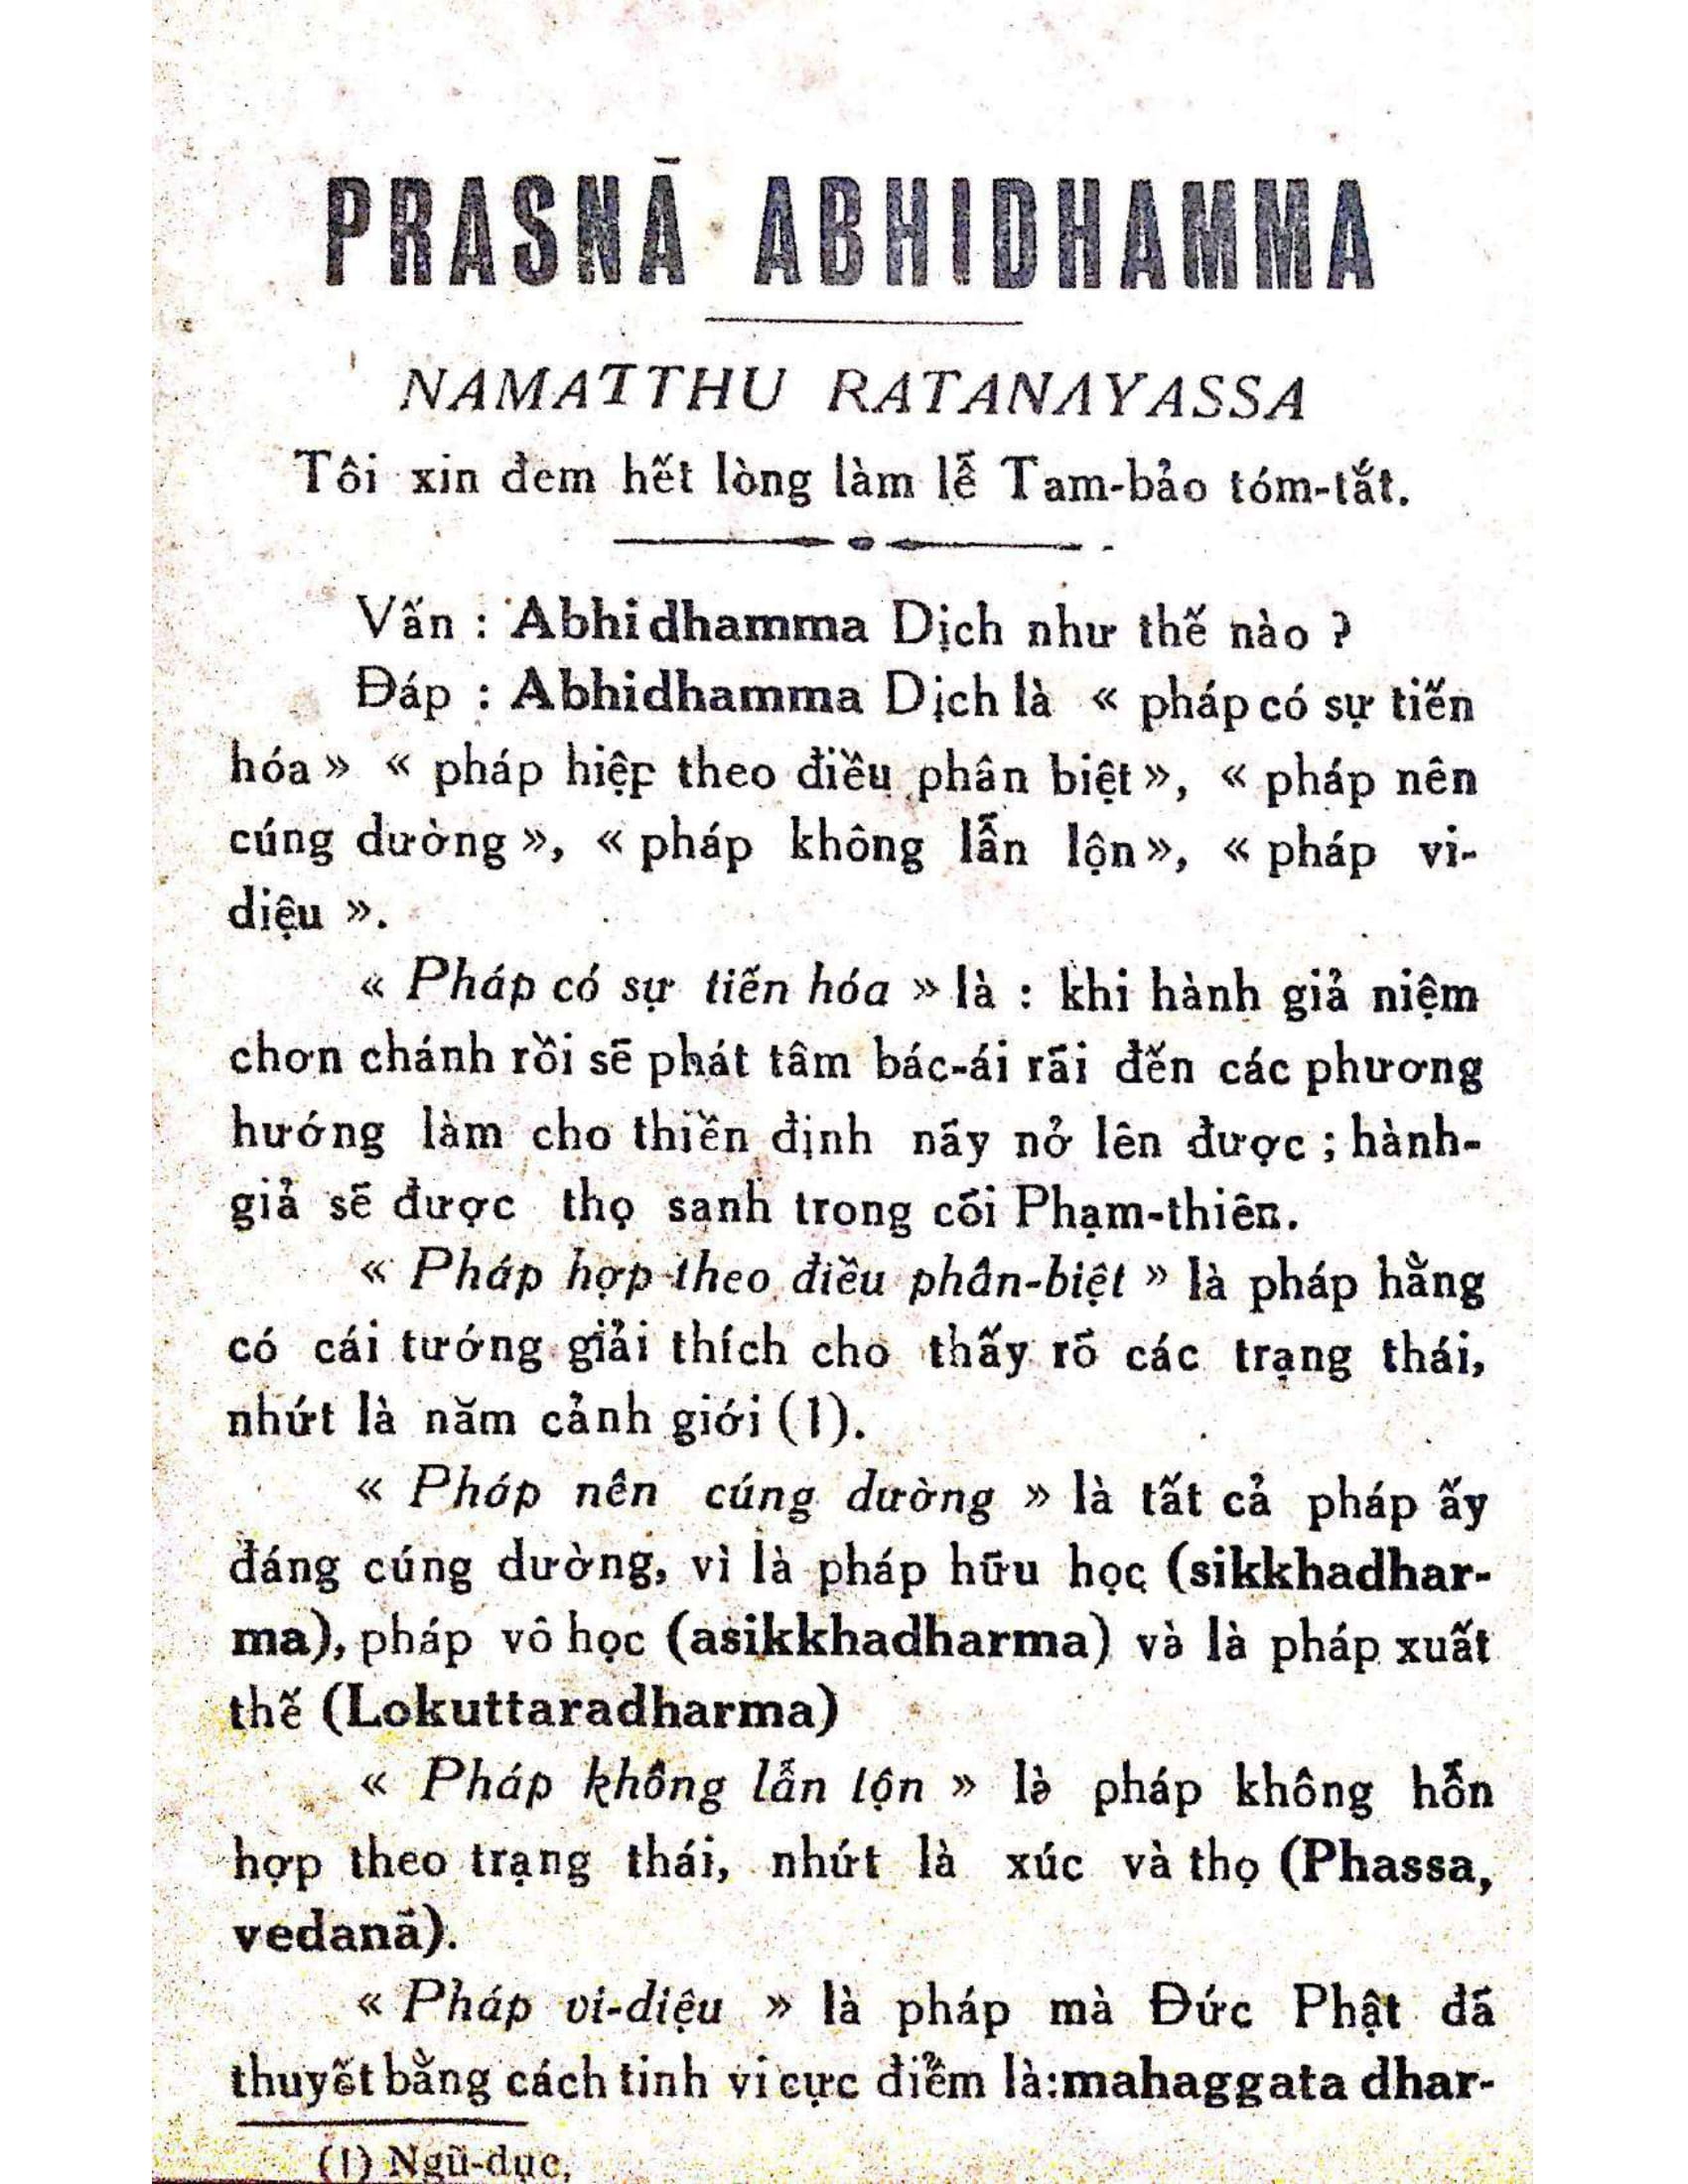 PRASNĀ ABHIDHAMMA
NAMATTHU RATANAYASSA
Tôi xin đem hết lòng làm lễ Tam-bảo tóm-tắt.
Vấn : Abhidhamma Dịch như thế nào ?
Đáp : Abhidhamma Dịch là « pháp có sự tiến
hóa » « pháp hiệp theo điều phân biệt », « pháp nên
cúng dường », « pháp không lẫn lộn », « pháp vi-
diệu ».
« Pháp có sự tiến hóa » là : khi hành giả niệm
chơn chánh rồi sẽ phát tâm bác-ái rãi đến các phương
hướng làm cho thiền định nãy nở lên được ; hành-
giả sẽ được thọ sanh trong cõi Phạm-thiên.
« Pháp hợp theo điều phân-biệt » là pháp hằng
có cái tướng giải thích cho thấy rõ các trạng thái,
nhứt là năm cảnh giới (1).
« Pháp nên cúng dường » là tất cả pháp ấy
đáng cúng dường, vì là pháp hữu học (sikkhadhar-
ma), pháp vô học (asikkhadharma) và là pháp xuất
thế (Lokuttaradharma)
« Pháp không lẫn lộn » là pháp không hỗn
hợp theo trạng thái, nhứt là xúc và thọ (Phassa,
vedanā).
« Pháp vi-diệu » là pháp mà Đức Phật đã
thuyết bằng cách tinh vi cực điểm là:mahaggata dhar-
(1) Ngũ-dục,